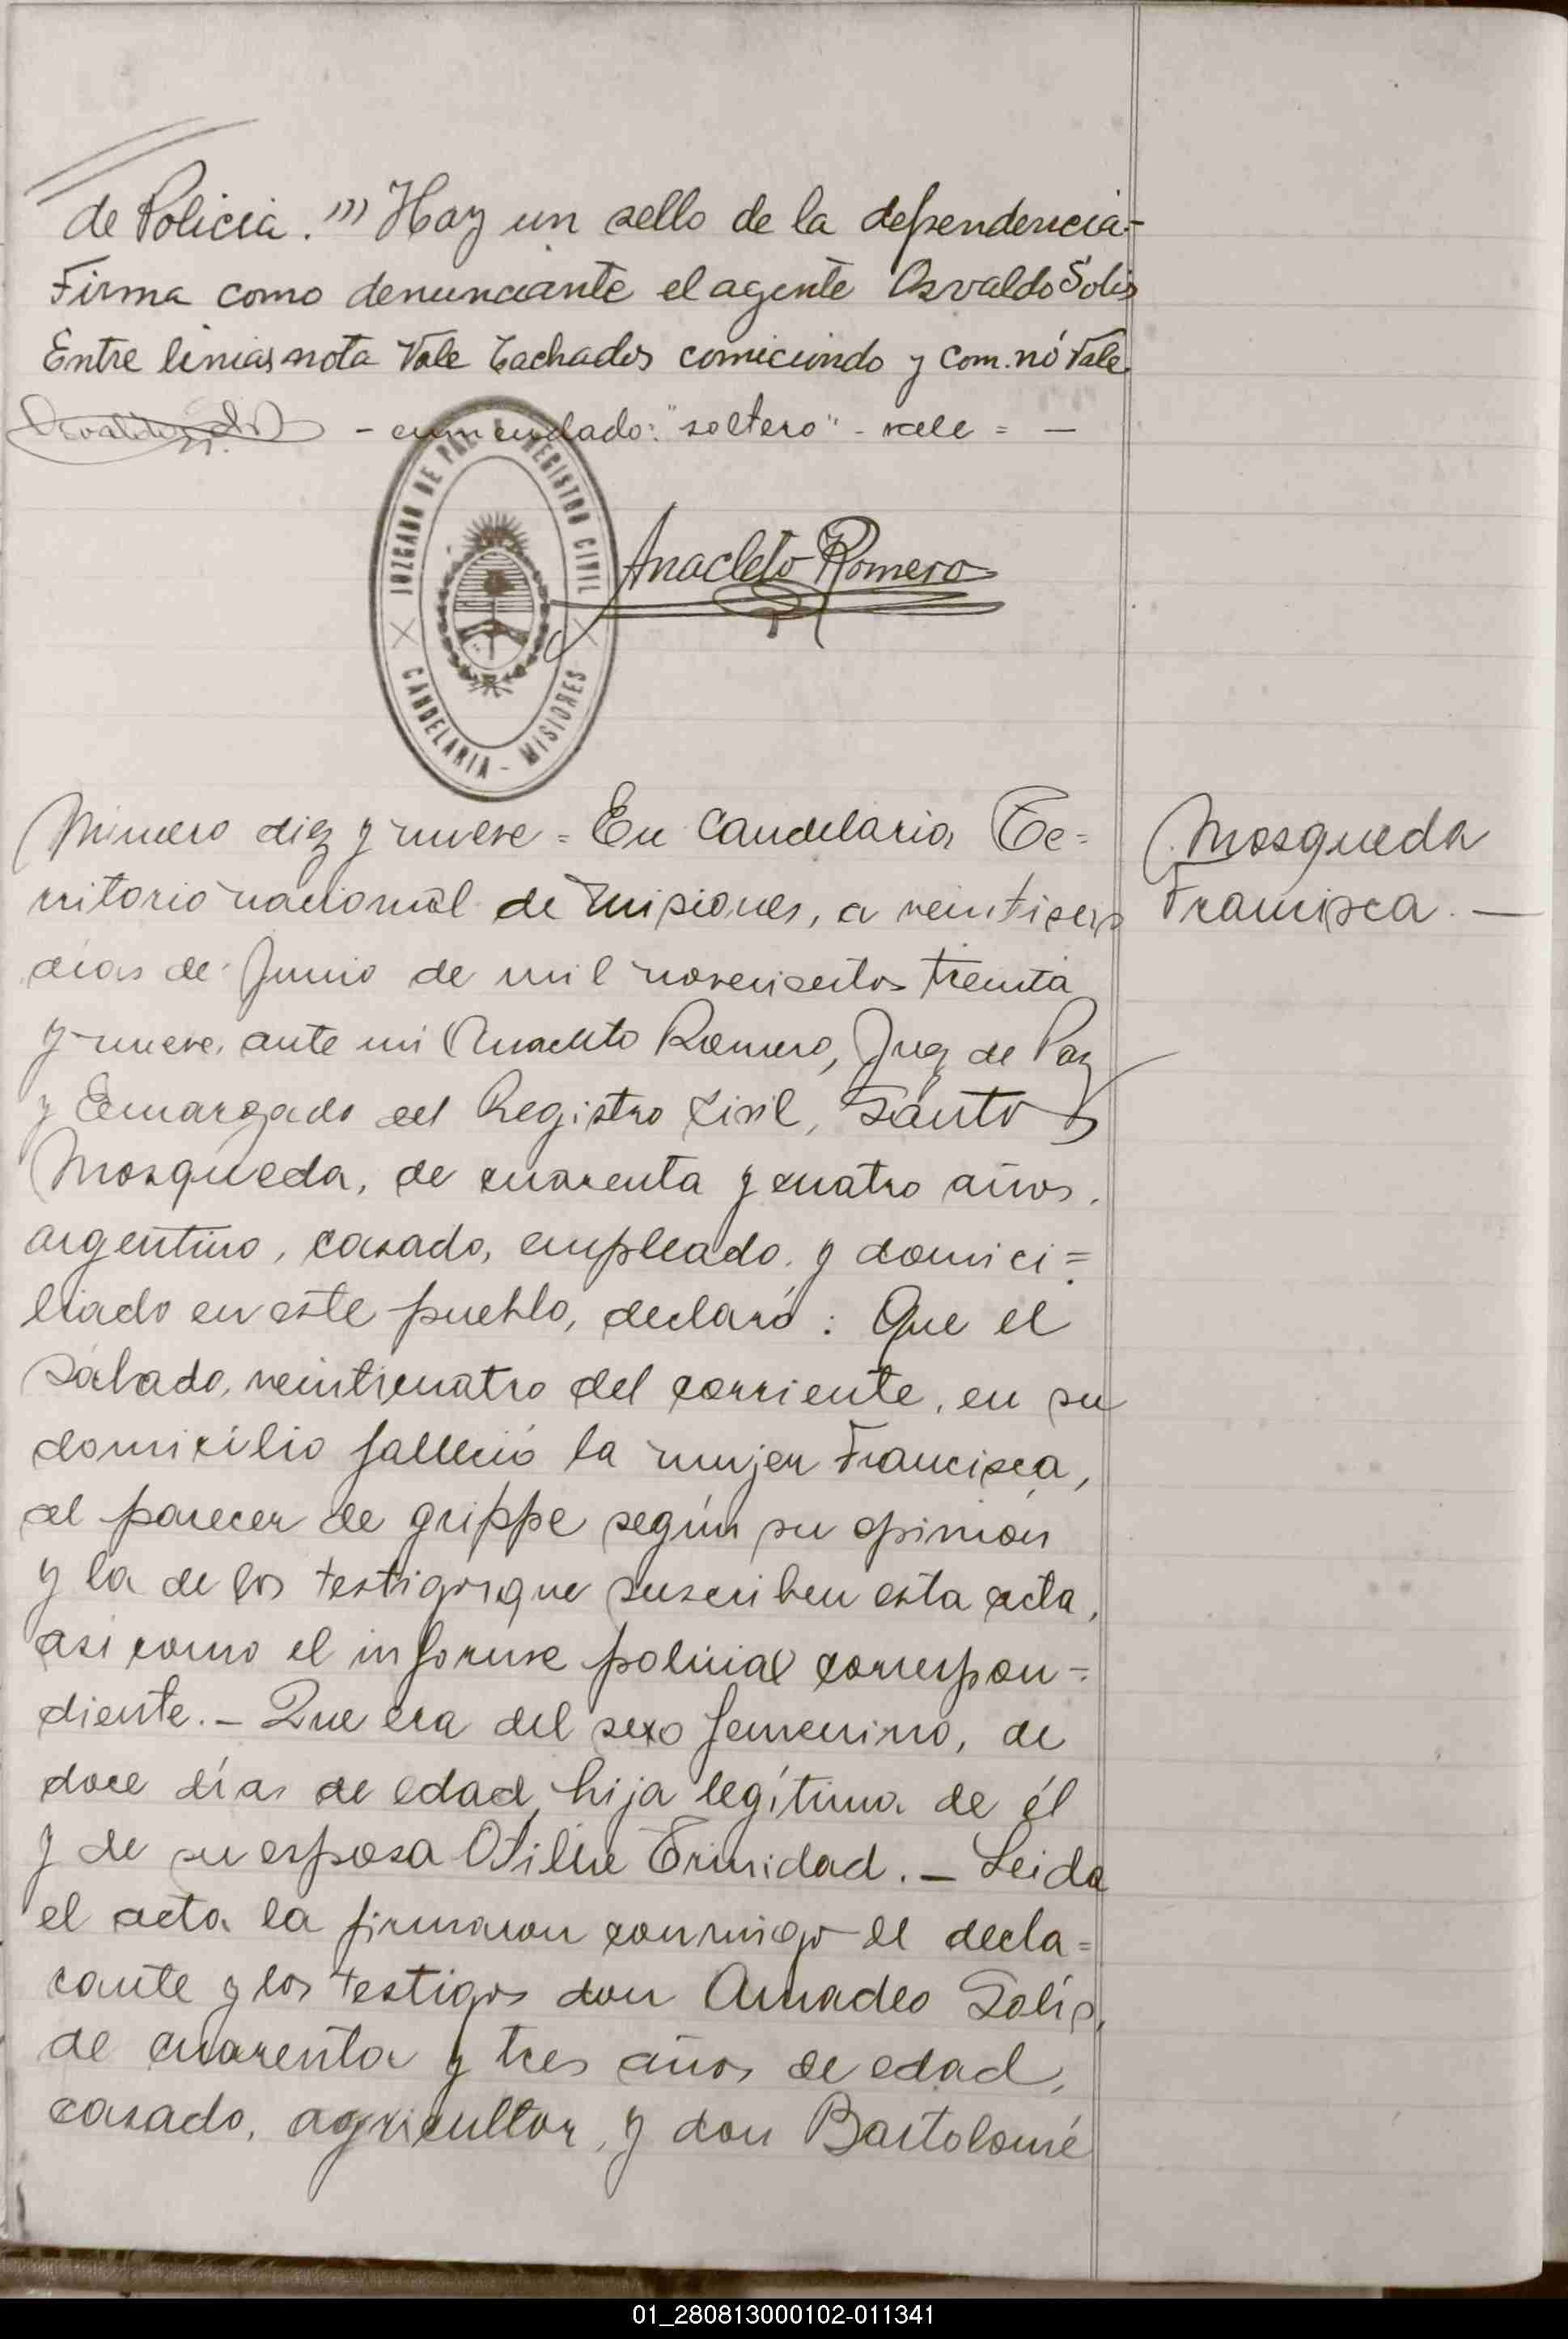 de Policia.")) Hay un sello de la dependencia-
Firma como denunciante el agente Osvaldo Solis
Entre linias nota Vale Tachados comiciondo y com. nó Vale
- enmendado: "soltero" - vale = -
JUZGADO DE PAZ REGISTRO CIVIL
CANDELARIA - MISIONES
Anacleto Romero
Número diez y nueve = En Candelaria Te=
Mosqueda
rritorio nacional de Misiones, a veintiseis
Francisca. -
días de Junio de mil novecientos treinta
y nueve, ante mi Anacleto Romero, Juez de Paz
y Encargado del Registro Civil, Santos
Mosqueda, de cuarenta y cuatro años,
argentino, casado, empleado, y domici=
liado en este pueblo, declaró: Que el
sábado, veinticuatro del corriente, en su
domicilio falleció la mujer Francisca,
al parecer de grippe según su opinión
y la de los testigos que suscriben esta acta,
asi como el informe policial correspon=
diente. - Que era del sexo femenino, de
doce días de edad, hija legítima de él
y de su esposa Otilia Trinidad. - Leida
el acta la firmaron conmigo el decla=
rante y los testigos don Amadeo Solís,
de cuarenta y tres años de edad,
casado, agricultor, y don Bartolomé
01_280813000102-011341